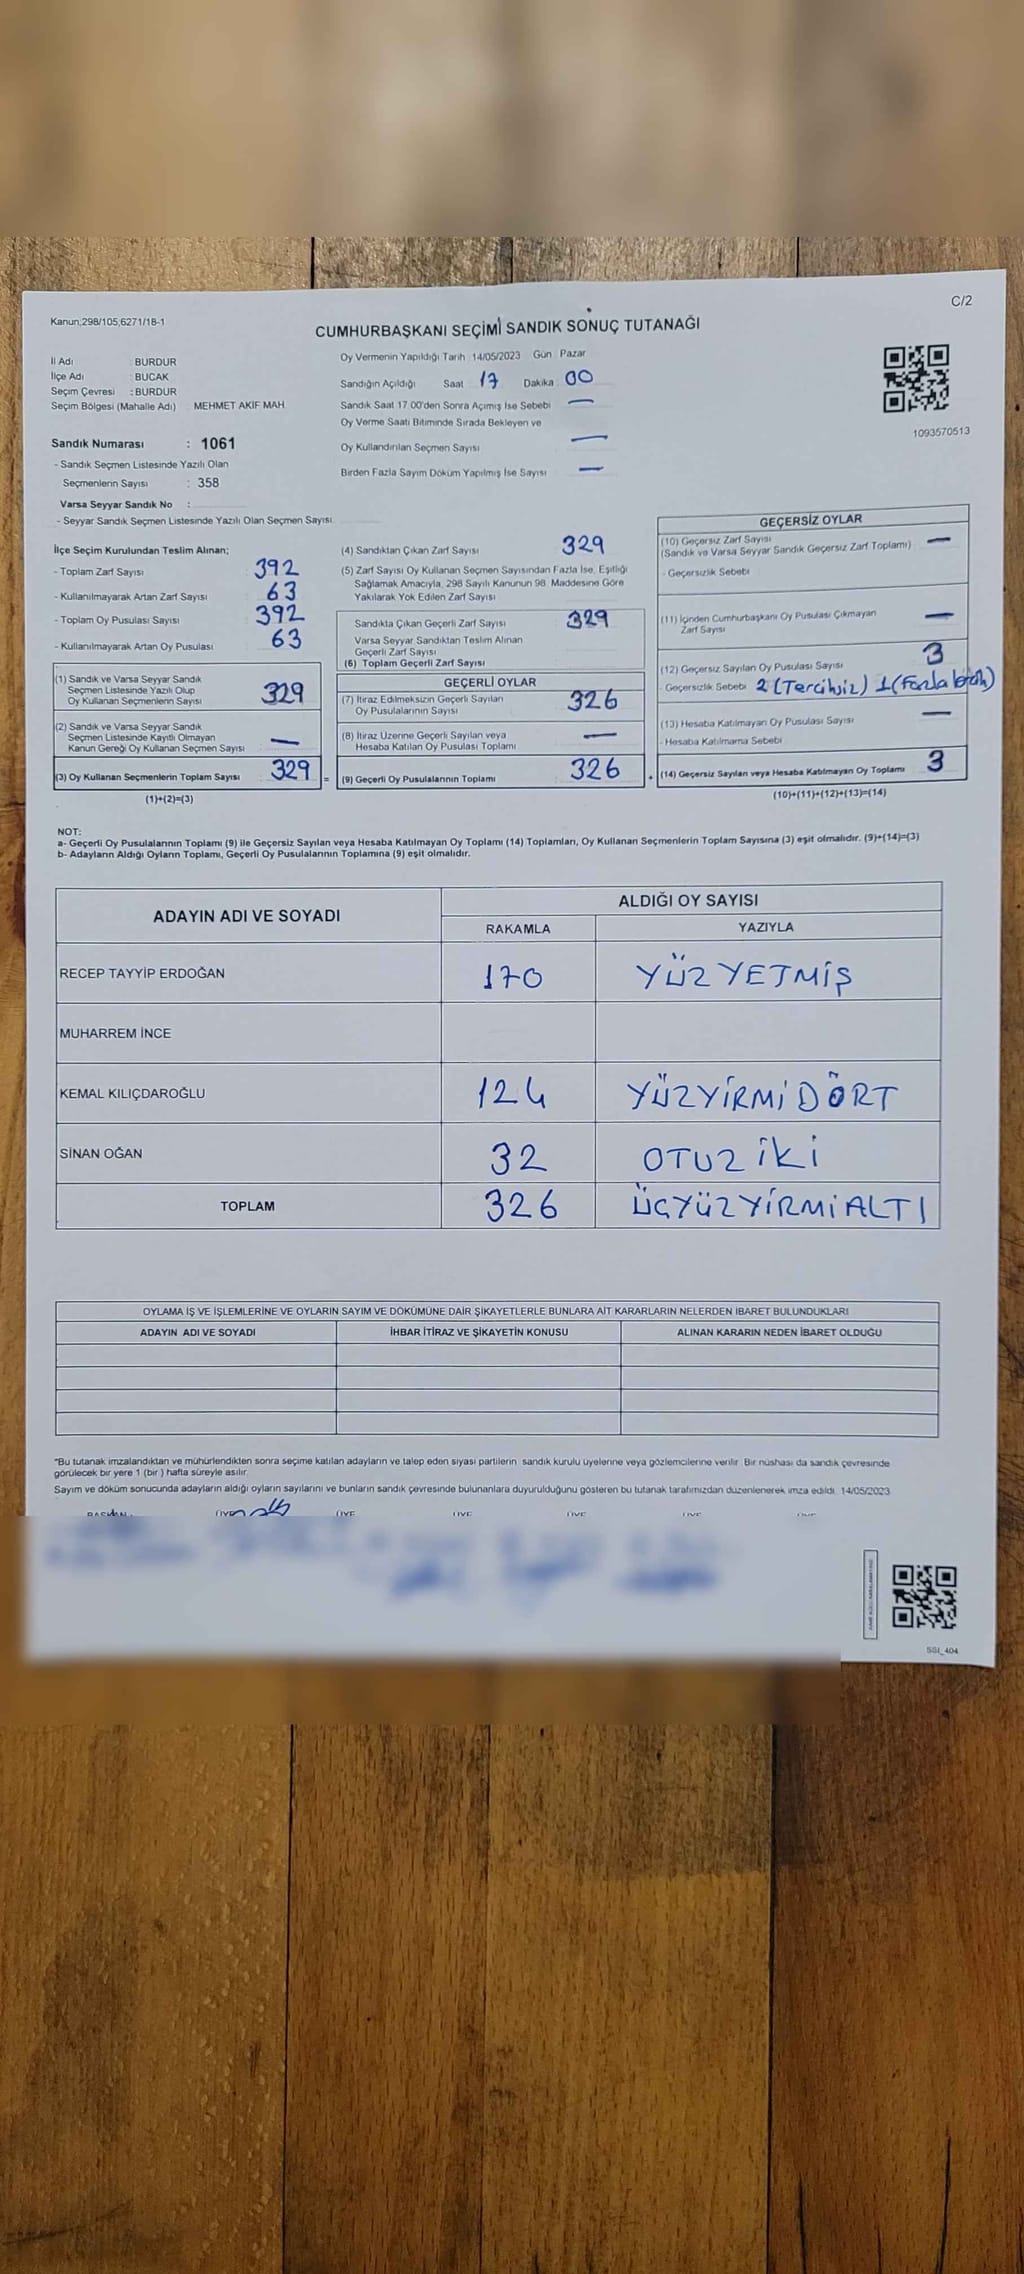 Kanun;298/105,6271/18-1
C/2
CUMHURBAŞKANI SEÇİMİ SANDIK SONUÇ TUTANAĞI
İl Adı : BURDUR
İlçe Adı : BUCAK
Seçim Çevresi : BURDUR
Seçim Bölgesi (Mahalle Adı) MEHMET AKİF MAH.
Sandık Numarası : 1061
- Sandık Seçmen Listesinde Yazılı Olan
Seçmenlerin Sayısı : 358
Varsa Seyyar Sandık No :
- Seyyar Sandık Seçmen Listesinde Yazılı Olan Seçmen Sayısı
Oy Vermenin Yapıldığı Tarih 14/05/2023 Gün Pazar
Sandığın Açıldığı Saat 17 Dakika 00
Sandık Saat 17.00'den Sonra Açılmış İse Sebebi —
Oy Verme Saati Bitiminde Sırada Bekleyen ve
Oy Kullandırılan Seçmen Sayısı —
Birden Fazla Sayım Döküm Yapılmış İse Sayısı —
1093570513
İlçe Seçim Kurulundan Teslim Alınan;
- Toplam Zarf Sayısı 392
- Kullanılmayarak Artan Zarf Sayısı 63
- Toplam Oy Pusulası Sayısı 392
- Kullanılmayarak Artan Oy Pusulası 63
(1) Sandık ve Varsa Seyyar Sandık
Seçmen Listesinde Yazılı Olup
Oy Kullanan Seçmenlerin Sayısı 329
(2) Sandık ve Varsa Seyyar Sandık
Seçmen Listesinde Kayıtlı Olmayan
Kanun Gereği Oy Kullanan Seçmen Sayısı —
(3) Oy Kullanan Seçmenlerin Toplam Sayısı 329 =
(1)+(2)=(3)
(4) Sandıktan Çıkan Zarf Sayısı 329
(5) Zarf Sayısı Oy Kullanan Seçmen Sayısından Fazla İse, Eşitliği
Sağlamak Amacıyla, 298 Sayılı Kanunun 98. Maddesine Göre
Yakılarak Yok Edilen Zarf Sayısı
Sandıkta Çıkan Geçerli Zarf Sayısı 329
Varsa Seyyar Sandıktan Teslim Alınan
Geçerli Zarf Sayısı
(6) Toplam Geçerli Zarf Sayısı
GEÇERLİ OYLAR
(7) İtiraz Edilmeksizin Geçerli Sayılan
Oy Pusulalarının Sayısı 326
(8) İtiraz Üzerine Geçerli Sayılan veya
Hesaba Katılan Oy Pusulası Toplamı —
(9) Geçerli Oy Pusulalarının Toplamı 326
GEÇERSİZ OYLAR
(10) Geçersiz Zarf Sayısı —
(Sandık ve Varsa Seyyar Sandık Geçersiz Zarf Toplamı)
- Geçersizlik Sebebi
(11) İçinden Cumhurbaşkanı Oy Pusulası Çıkmayan
Zarf Sayısı —
(12) Geçersiz Sayılan Oy Pusulası Sayısı 3
- Geçersizlik Sebebi 2 (Tercihsiz) 1 (Fazla
(13) Hesaba Katılmayan Oy Pusulası Sayısı —
- Hesaba Katılmama Sebebi
(14) Geçersiz Sayılan veya Hesaba Katılmayan Oy Toplamı 3
(10)+(11)+(12)+(13)=(14)
NOT:
a- Geçerli Oy Pusulalarının Toplamı (9) ile Geçersiz Sayılan veya Hesaba Katılmayan Oy Toplamı (14) Toplamları, Oy Kullanan Seçmenlerin Toplam Sayısına (3) eşit olmalıdır. (9)+(14)=(3)
b- Adayların Aldığı Oyların Toplamı, Geçerli Oy Pusulalarının Toplamına (9) eşit olmalıdır.
ADAYIN ADI VE SOYADI ALDIĞI OY SAYISI
RAKAMLA YAZIYLA
RECEP TAYYİP ERDOĞAN 170 YÜZ YETMİŞ
MUHARREM İNCE
KEMAL KILIÇDAROĞLU 124 YÜZYİRMİ DÖRT
SİNAN OĞAN 32 OTUZ İKİ
TOPLAM 326 ÜÇYÜZ YİRMİ ALTI
OYLAMA İŞ VE İŞLEMLERİNE VE OYLARIN SAYIM VE DÖKÜMÜNE DAİR ŞİKAYETLERLE BUNLARA AİT KARARLARIN NELERDEN İBARET BULUNDUKLARI
ADAYIN ADI VE SOYADI İHBAR İTİRAZ VE ŞİKAYETİN KONUSU ALINAN KARARIN NEDEN İBARET OLDUĞU
"Bu tutanak imzalandıktan ve mühürlendikten sonra seçime katılan adayların ve talep eden siyasi partilerin sandık kurulu üyelerine veya gözlemcilerine verilir. Bir nüshası da sandık çevresinde
görülecek bir yere 1 (bir) hafta süreyle asılır.
Sayım ve döküm sonucunda adayların aldığı oyların sayılarını ve bunların sandık çevresinde bulunanlara duyurulduğunu gösteren bu tutanak tarafımızdan düzenlenerek imza edildi. 14/05/2023
BAŞKAN ÜYE ÜYE ÜYE ÜYE ÜYE ÜYE
SSI_404